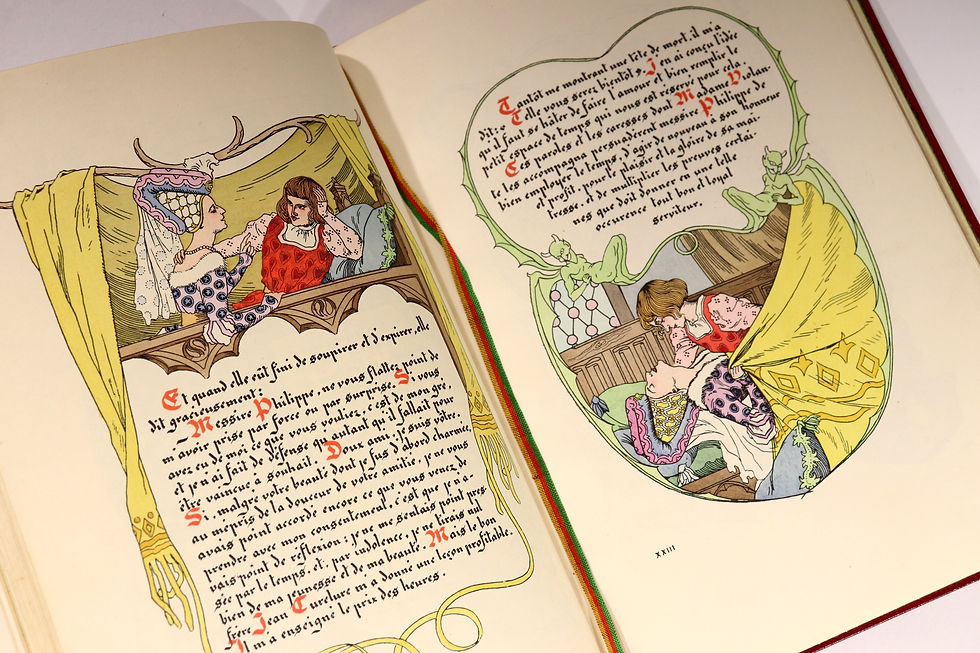 Et quand elle eût fini de soupirer et d'expirer, elle
dit gracieusement :
— Messire Philippe, ne vous flattez point de
m'avoir prise par force ou par surprise. Si vous
avez eu de moi ce que vous vouliez, c'est de mon gré,
et je n'ai fait de défense qu'autant qu'il fallait pour
être vaincue à souhait. Doux ami, je suis vôtre.
Si, malgré votre beauté dont je fus d'abord charmée
au mépris de la douceur de votre amitié, je ne vous
avais point accordé encore ce que vous venez de
prendre avec mon consentement, c'est que je n'a-
vais point de réflexion : je ne me sentais point pres-
sée par le temps, et, par indolence, je ne tirais nul
bien de ma jeunesse et de ma beauté. Mais le bon
frère Jean Turelure m'a donné une leçon profitable.
Il m'a enseigné le prix des heures.
Tantôt me montrant une tête de mort, il m'a
dit : « Telle vous serez bientôt ». J'en ai conçu l'idée
qu'il faut se hâter de faire l'amour et bien remplir le
petit espace de temps qui nous est réservé pour cela.
Ces paroles et les caresses dont Madame Violan-
te les accompagna persuadèrent messire Philippe de
bien employer le temps, d'agir de nouveau à son honneur
et profit, pour le plaisir et la gloire de sa maî-
tresse, et de multiplier les preuves certai-
nes que doit donner en une telle
occurence tout bon et loyal
serviteur.
XXIII